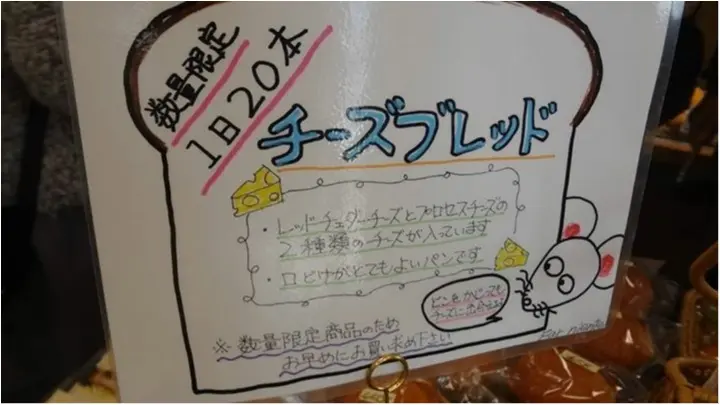 数量限定
1日20本
チーズブレッド
・レッドチェダーチーズとプロセスチーズの
2種類のチーズが入っています
・口どけがとてもよいパンです
どこをかじっても
チーズに出会えるよ
※数量限定商品のため
お早めにお買い求め下さい